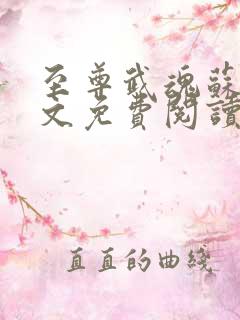 至尊武魂蘇
文免費閱讀
直直的曲綫